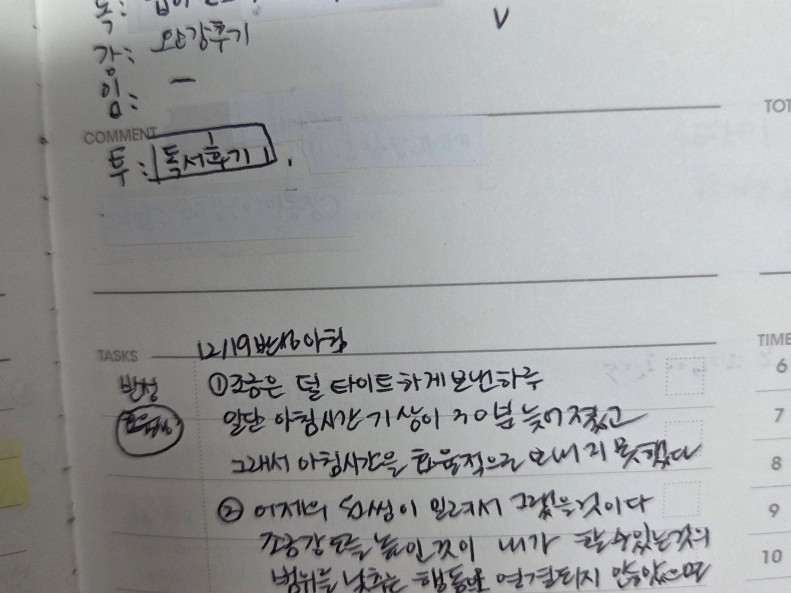 독:
강: 완강후기
임: -
V
TOT
COMMENT
투: 독서후기
TASKS
12/19 반성아침
TIME
반성
① 조금은 덜 타이트하게 보낸하루
일단 아침시간 기상이 30분 늦어졌고
그래서 아침시간을 효율적으로 보내지 못했다
② 어제의 일이 밀려서 그랬을것이다
조금강도를 높인것이 내가 할수있는것의
범위를 낮추는 행동으로 연결되지 않았으면
6
7
8
9
10